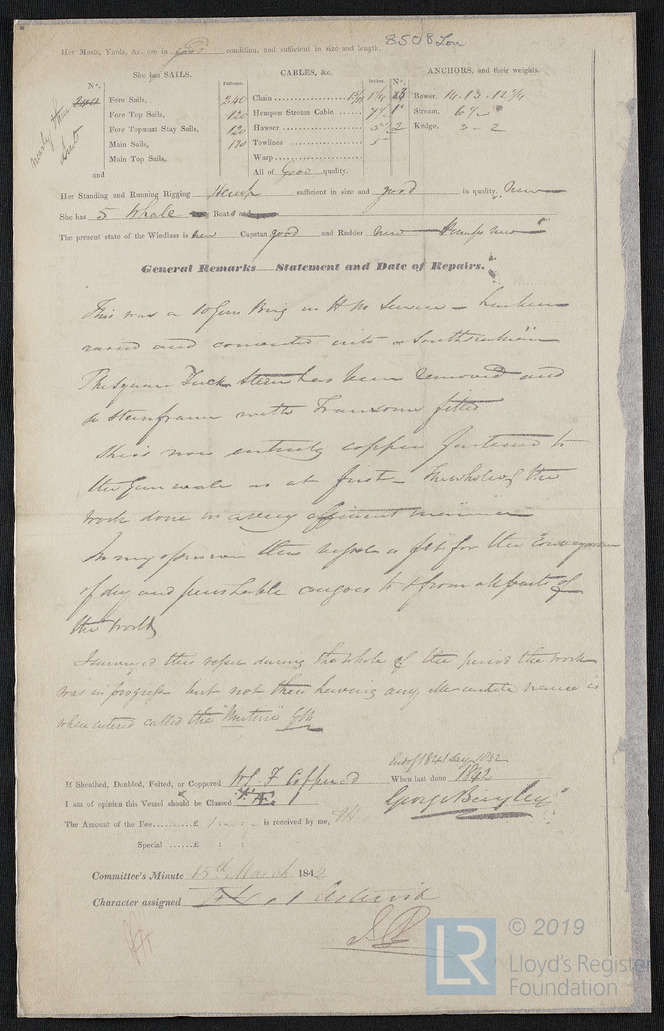 8508 Lon
Her Masts, Yards, &c. are in good condition, and sufficient in size and length.
She has SAILS.
CABLES, &c.
ANCHORS, and their weights.
N°.
Fathoms.
Inches.
N°.
nearly two suit
Fore Sails,
Fore Top Sails,
Fore Topmast Stay Sails,
Main Sails,
Main Top Sails,
and
240
120
120
170
Chain
Hempen Stream Cable
Hawser 5 2
Towlines 5
Warp
All of Good quality.
Bower, 14.13.12¾
Stream,
Kedge, 3 - 2
Her Standing and Running Rigging Hemp sufficient in size and good in quality. New
She has 5 Whale Boats and
The present state of the Windlass is new Capstan good and Rudder new Pumps new
General Remarks Statement and Date of Repairs.
This was a 10 Gun Brig in H M Service - has been
raised and converted into a Southseaman
The square Tuck Stern has been removed and
a Sternframe with Transoms fitted
She is now entirely copper fastened to
the Gunwale as at first - The whole of the
work done in a very efficient manner
In my opinion this vessel is fit for the Conveyance
of dry and perishable cargoes to & from all parts of
the world
I surveyed this vessel during the whole of the period the work
was in progress but not then having any Mercantile name is
when entered called the GB
End of 1841 1842
If Sheathed, Doubled, Felted, or Coppered F Coppered When last done 1842
I am of opinion this Vessel should be Classed
George Bayley
The Amount of the Fee......£ 1 : - : - is received by me,
Special ......£ : :
Committee's Minute 15th March 1842
Character assigned
© 2019
LR
Lloyd's Register
Foundation